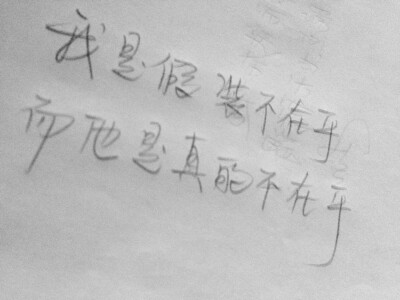 我是假装不在乎
而他是真的不在乎